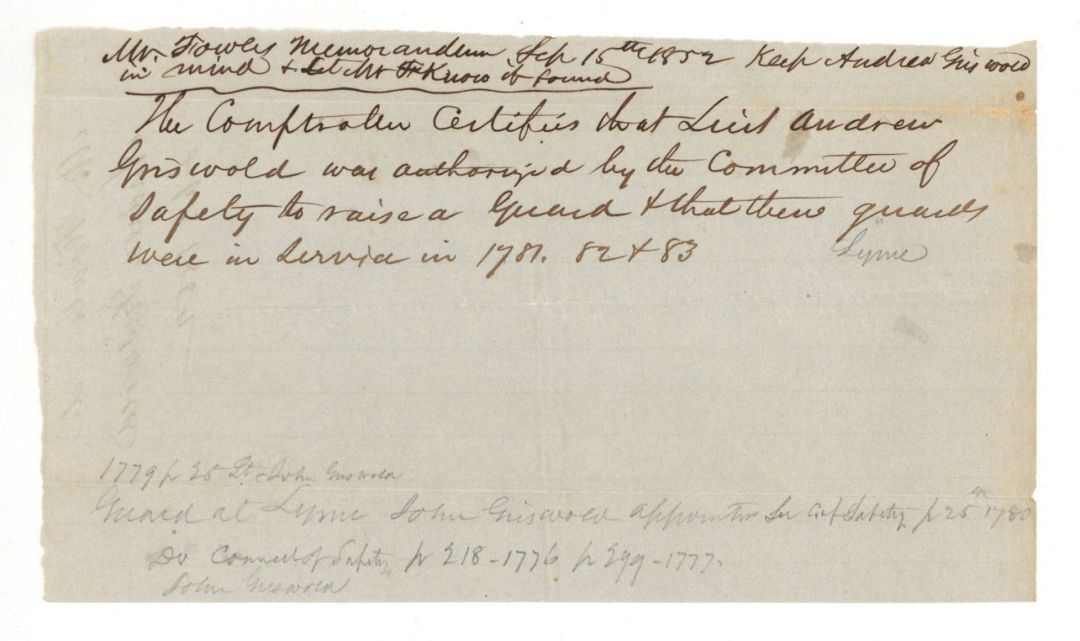 Mr. Fowles Memorandum Sep 15th 1852 Keep Andrew Griswold
in mind & Let Mr F Know if found
The Comptroller Certifies that Lieut Andrew
Griswold was authorized by the Committee of
Safety to raise a Guard & that these guards
were in Service in 1781. 82 & 83
Lyme
1779 p 25 Lt John Griswold
Guard at Lyme John Griswold appointed Safety p 25 in 1780
Do Council of Safety p 218 - 1776 p 299 - 1777.
John Griswold